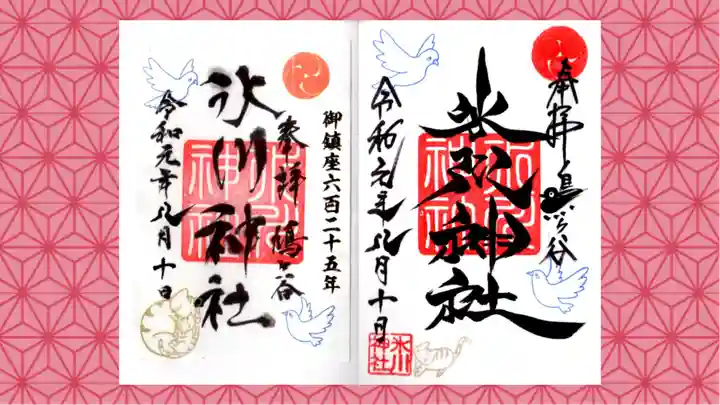 御鎮座六百二十五年
奉拝 鳩ヶ谷
氷川神社
令和元年八月十日
奉拝 鳩ヶ谷
氷川神社
令和元年八月十日
氷川神社